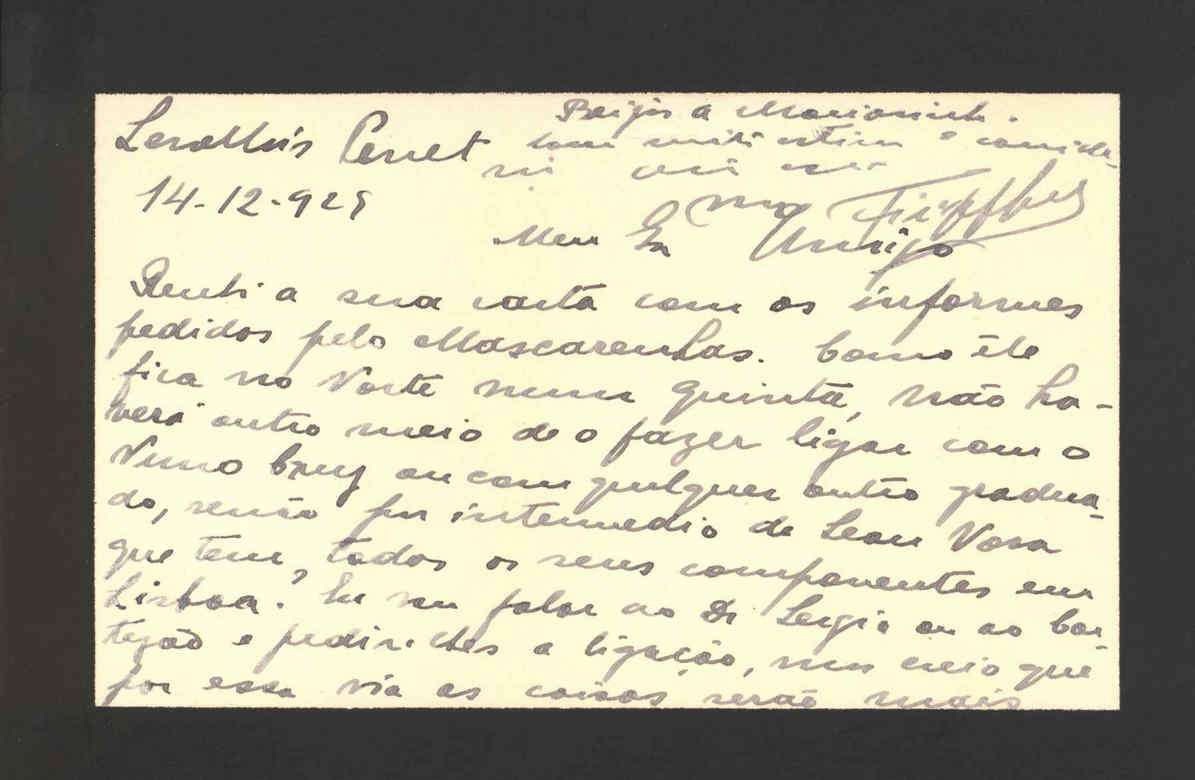 Beijos a
com muita estima e
14-12-92
Meu Exmo Amigo
Recebi a sua carta com os informes
pedidos pelo Mascarenhas. Como êle
fica no Norte numa quinta, não ha-
verá outro meio de o fazer ligar com o
Nuno Cruz ou com qualquer outro gradua-
do, senão por intermedio de
que tem, todos os seus componentes em
Lisboa. Eu vou falar ao Dr Sergio ou ao Cor-
tezão e pedir-lhes a ligação, mas creio que
por essa via as coisas serão mais